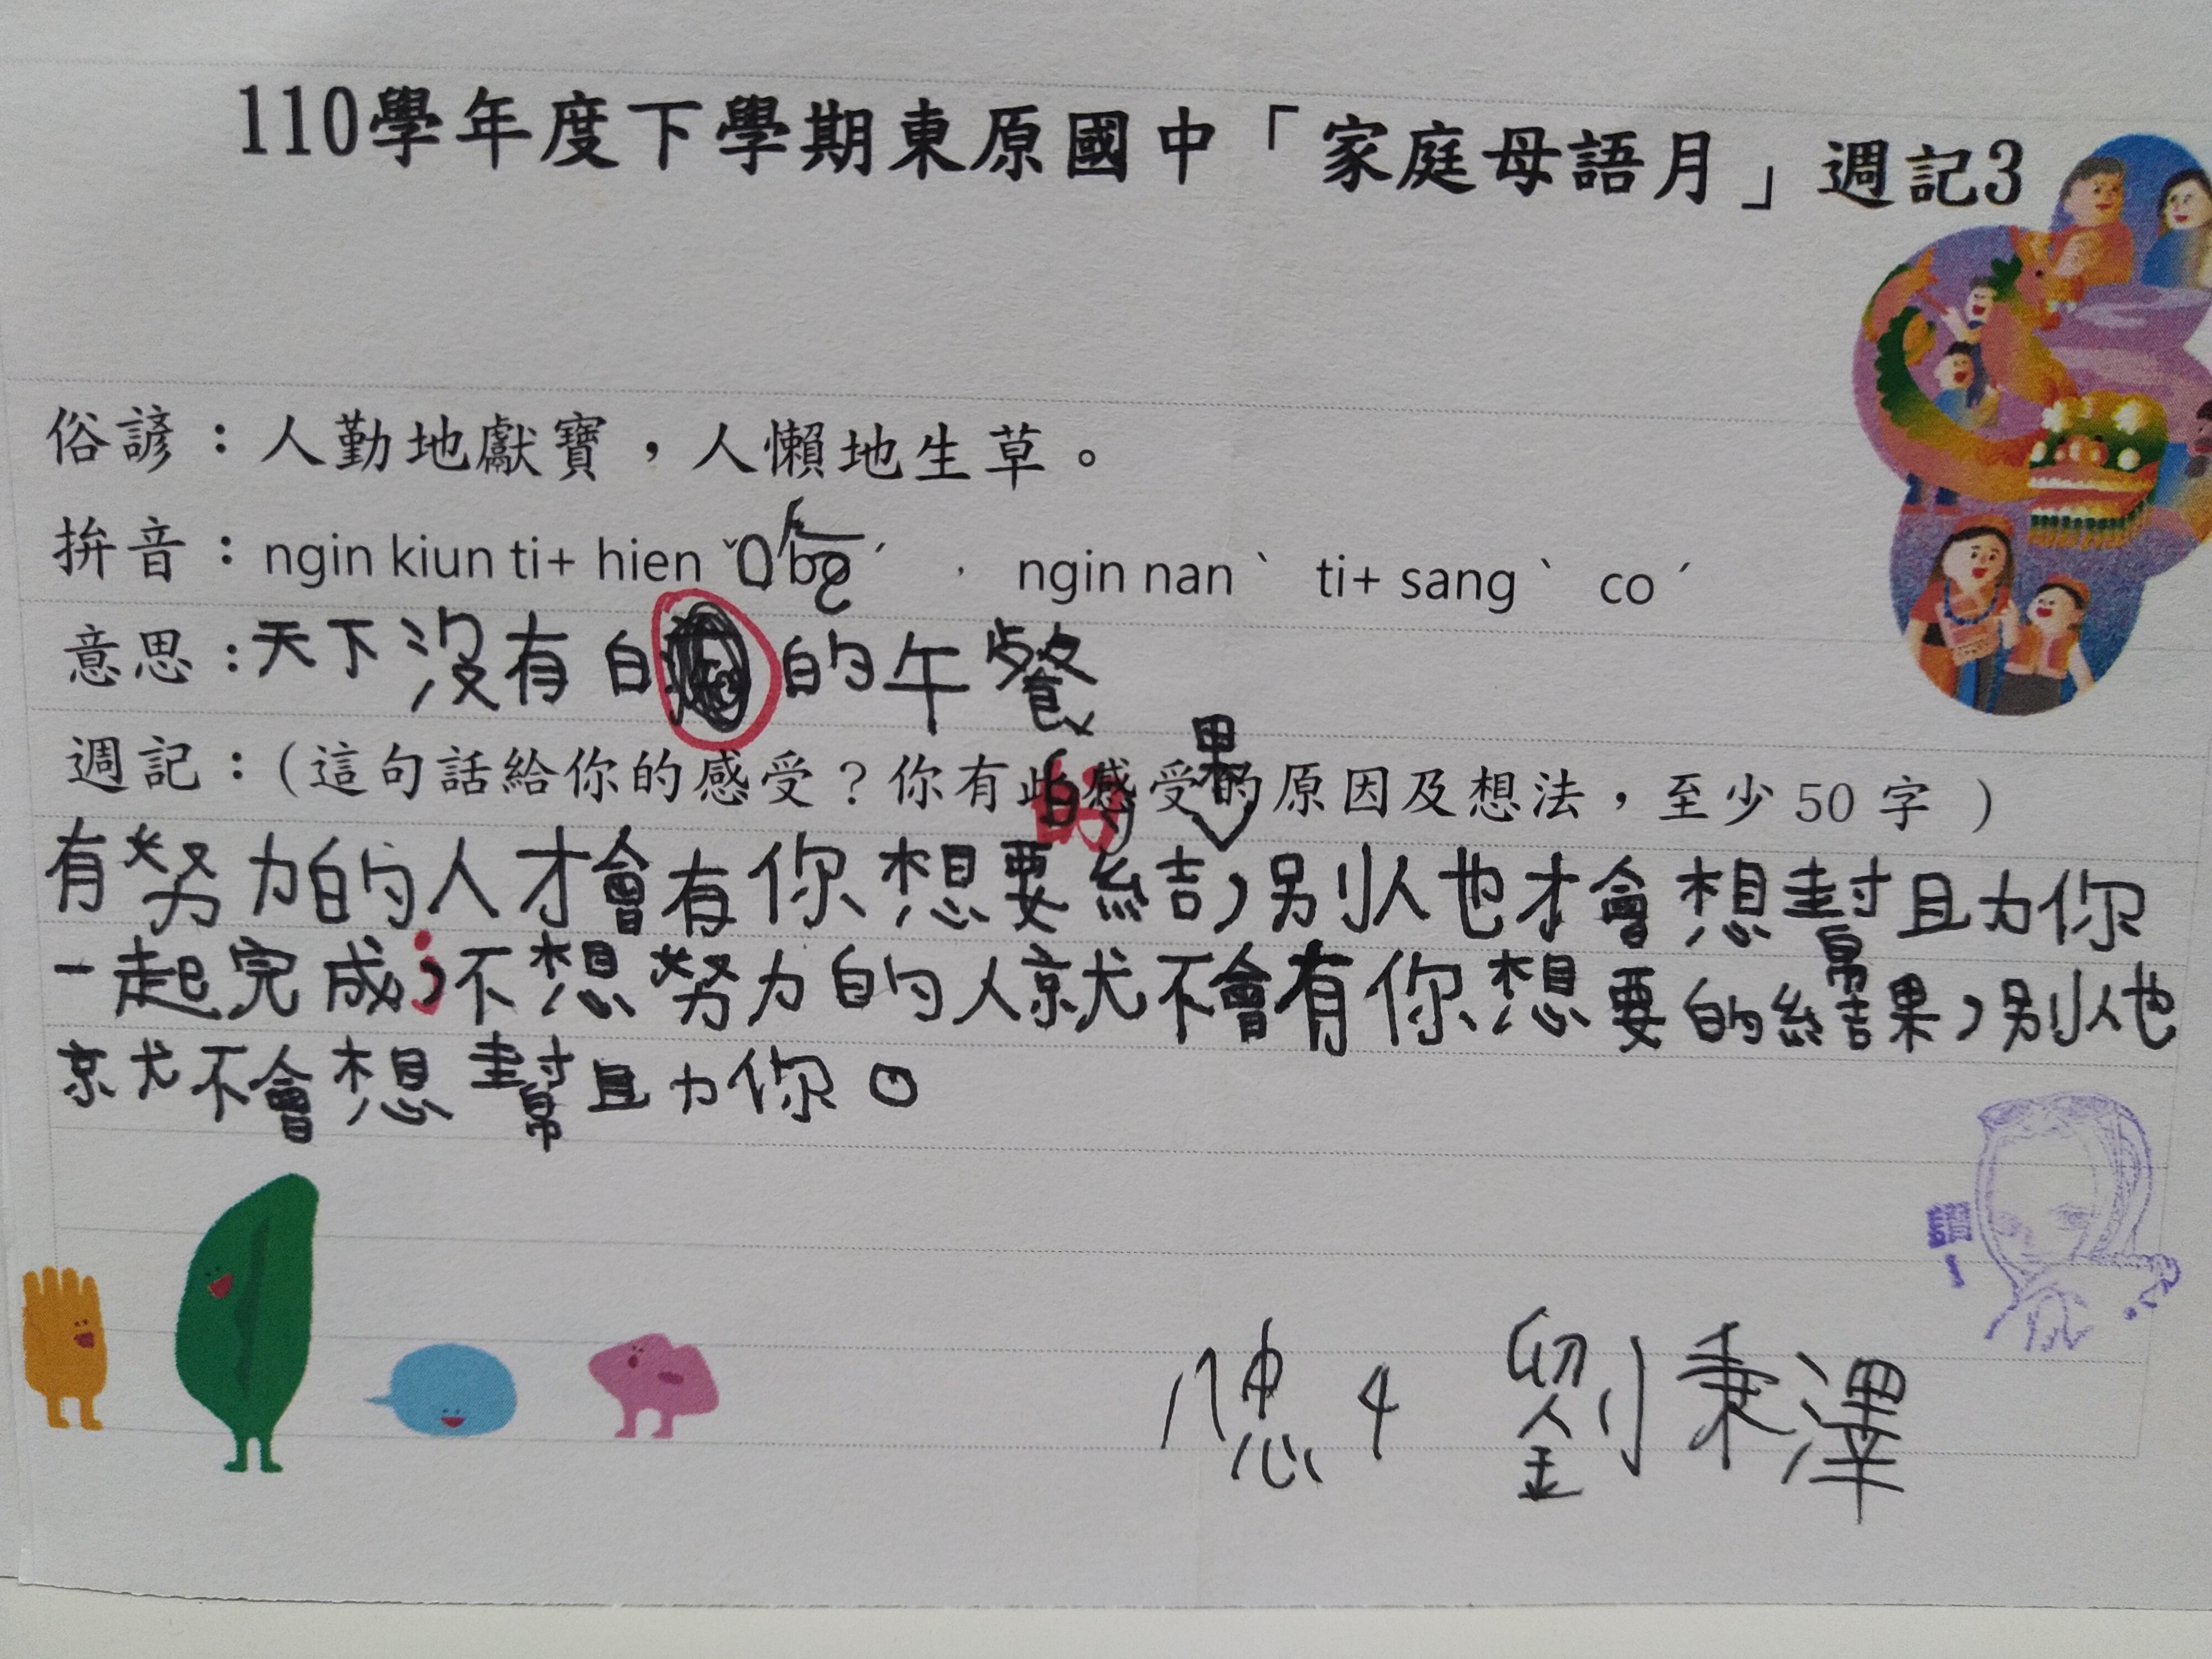 110學年度下學期東原國中「家庭母語月」週記3
俗諺：人勤地獻寶，人懶地生草。
拼音：ngin kiun ti+ hien ˇ 吃 boˊ ， ngin nanˋ ti+ sangˋ coˊ
意思：天下沒有白的午餐
週記：(這句話給你的感受？你有此感受的原因及想法，至少50字)
的 果
有努力的人才會有你想要結，別人也才會想幫助你
一起完成；不想努力的人就不會有你想要的結果，別人也
就不會想幫助你。
讚！
八忠4 劉秉澤